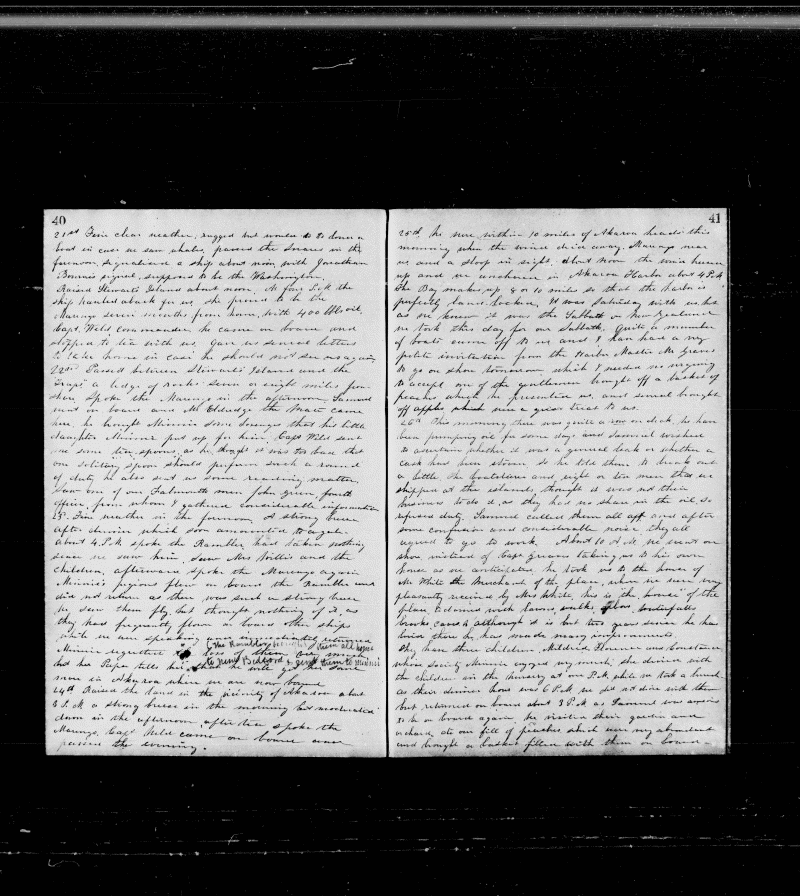 40
21st Fine clear weather, rugged but would do to down a
boat in case we saw whales, passed the Snares in the
forenoon, signalized a ship about noon with Jonathan
Bournes signal, supposed to be the Washington.
Raised Stewarts Island about noon. At four P.M. the
ship hauled aback for us, she proved to be the
Marengo seven months from home, with 400 bbls oil,
Capt. Weld commander he came on board and
stopped to tea with us. Gave us several letters
to take home in case he should not see us again,
22nd Passed between Stewarts Island and the
Traps a ledge of rocks seven or eight miles from
shore, Spoke the Marengo in the afternoon, Samuel
went on board and Mr Eldredge the mate came
here, he brought Minnie some lozenges that his little
daughter Minnie put up for him, Capt Weld sent
me some tea spoons, as he thought it was too bad that
one solitary spoon should perform such a round
of duty, he also sent us some reading matter,
Saw one of our Falmouth men John Green, fourth
officer, from whom I gathered considerable information
23rd Fine weather in the forenoon, A strong breeze
after dinner which soon amounted to a gale.
About 4 P.M. spoke the Rambler, had taken nothing
since we saw him, Saw Mrs Willis and the
children, afterward spoke the Marengo again
Minnie's pigeons flew on board the Rambler and
did not return as there was such a strong breeze
We saw them fly, but thought nothing of it, as
they had frequently flown on board other ships
while we were speaking and immediately returned
the Rambler
Minnie regretted loss of them very much,
to New Bedford & sent them to Minnie
but her Papa tells her she will get her some
more in Akaroa where we are now bound
24th Raised the land in the vicinity of Akaroa about
3 P.M. a strong breeze in the morning but moderated
down in the afternoon, after tea spoke the
Marengo, Capt Weld came on board and
passed the evening.
41
25th We were within 10 miles of Akaroa heads this
morning when the wind died away. Marengo near
us and a sloop in sight. About noon the wind breezed
up and we anchored in Akaroa Harbor about 4 P.M.
The Bay makes up 8 or 10 miles so that the harbor is
perfectly land-locked, It was Saturday with us but
as we knew it was the Sabbath in New Zealand
we took this day for our Sabbath, Quite a number
of boats came off to us and I have had a very
polite invitation from the Harbor Master Mr Greaves
to go on shore tomorrow, which I needed no urging
to accept, one of the gentlemen brought off a basket of
peaches which he presented us, and several brought
off apples which were a great treat to us.
26th This morning there was quite a row on deck, we have
been pumping oil for some days and Samuel wished
to ascertain whether it was a general leak or whether a
cask had been stoven, so he told them to break out
a little. The boatsteerers and eight or ten men that we
shipped at the islands thought it was not their
business to do it, as they had no share in the oil, so
refused duty, Samuel called them all aft and after
some confusion and considerable noise they all
agreed to go to work. About 10 A.M. we went on
shore instead of Capt Greaves taking us to his own
house as we anticipated, he took us to the house of
Mr White the Merchant of the place, where we were very
pleasantly received by Mrs White, this is the "house" of the
place, & adorned with lawns, walks, waterfalls
brooks, caves & although it is but two years since he has
lived there he has made many improvements.
They have three children, Mildred Florence and Constance,
whose society Minnie enjoyed very much, she dined with
the children in the nursery at one P.M. while we took a lunch.
as their dinner hour was 6 P.M. we did not dine with them
but returned on board about 3 P.M. as Samuel was anxious
to be on board again, We visited their garden and
orchard, ate our fill of peaches which were very abundant
and brought a basket filled with them on board